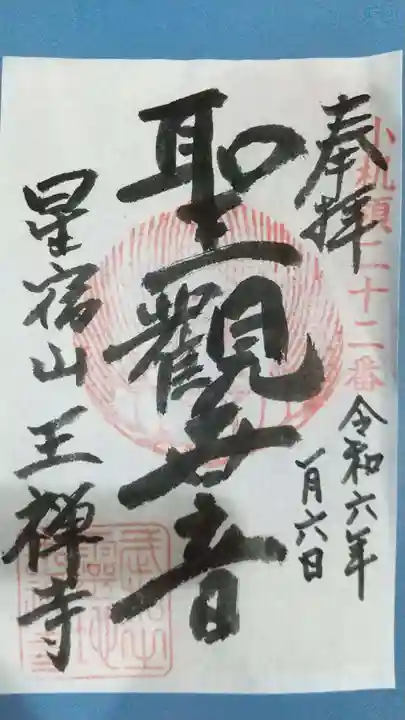 小机領二十二番
奉拝
令和六年
一月六日
聖觀世音
星宿山王禅寺